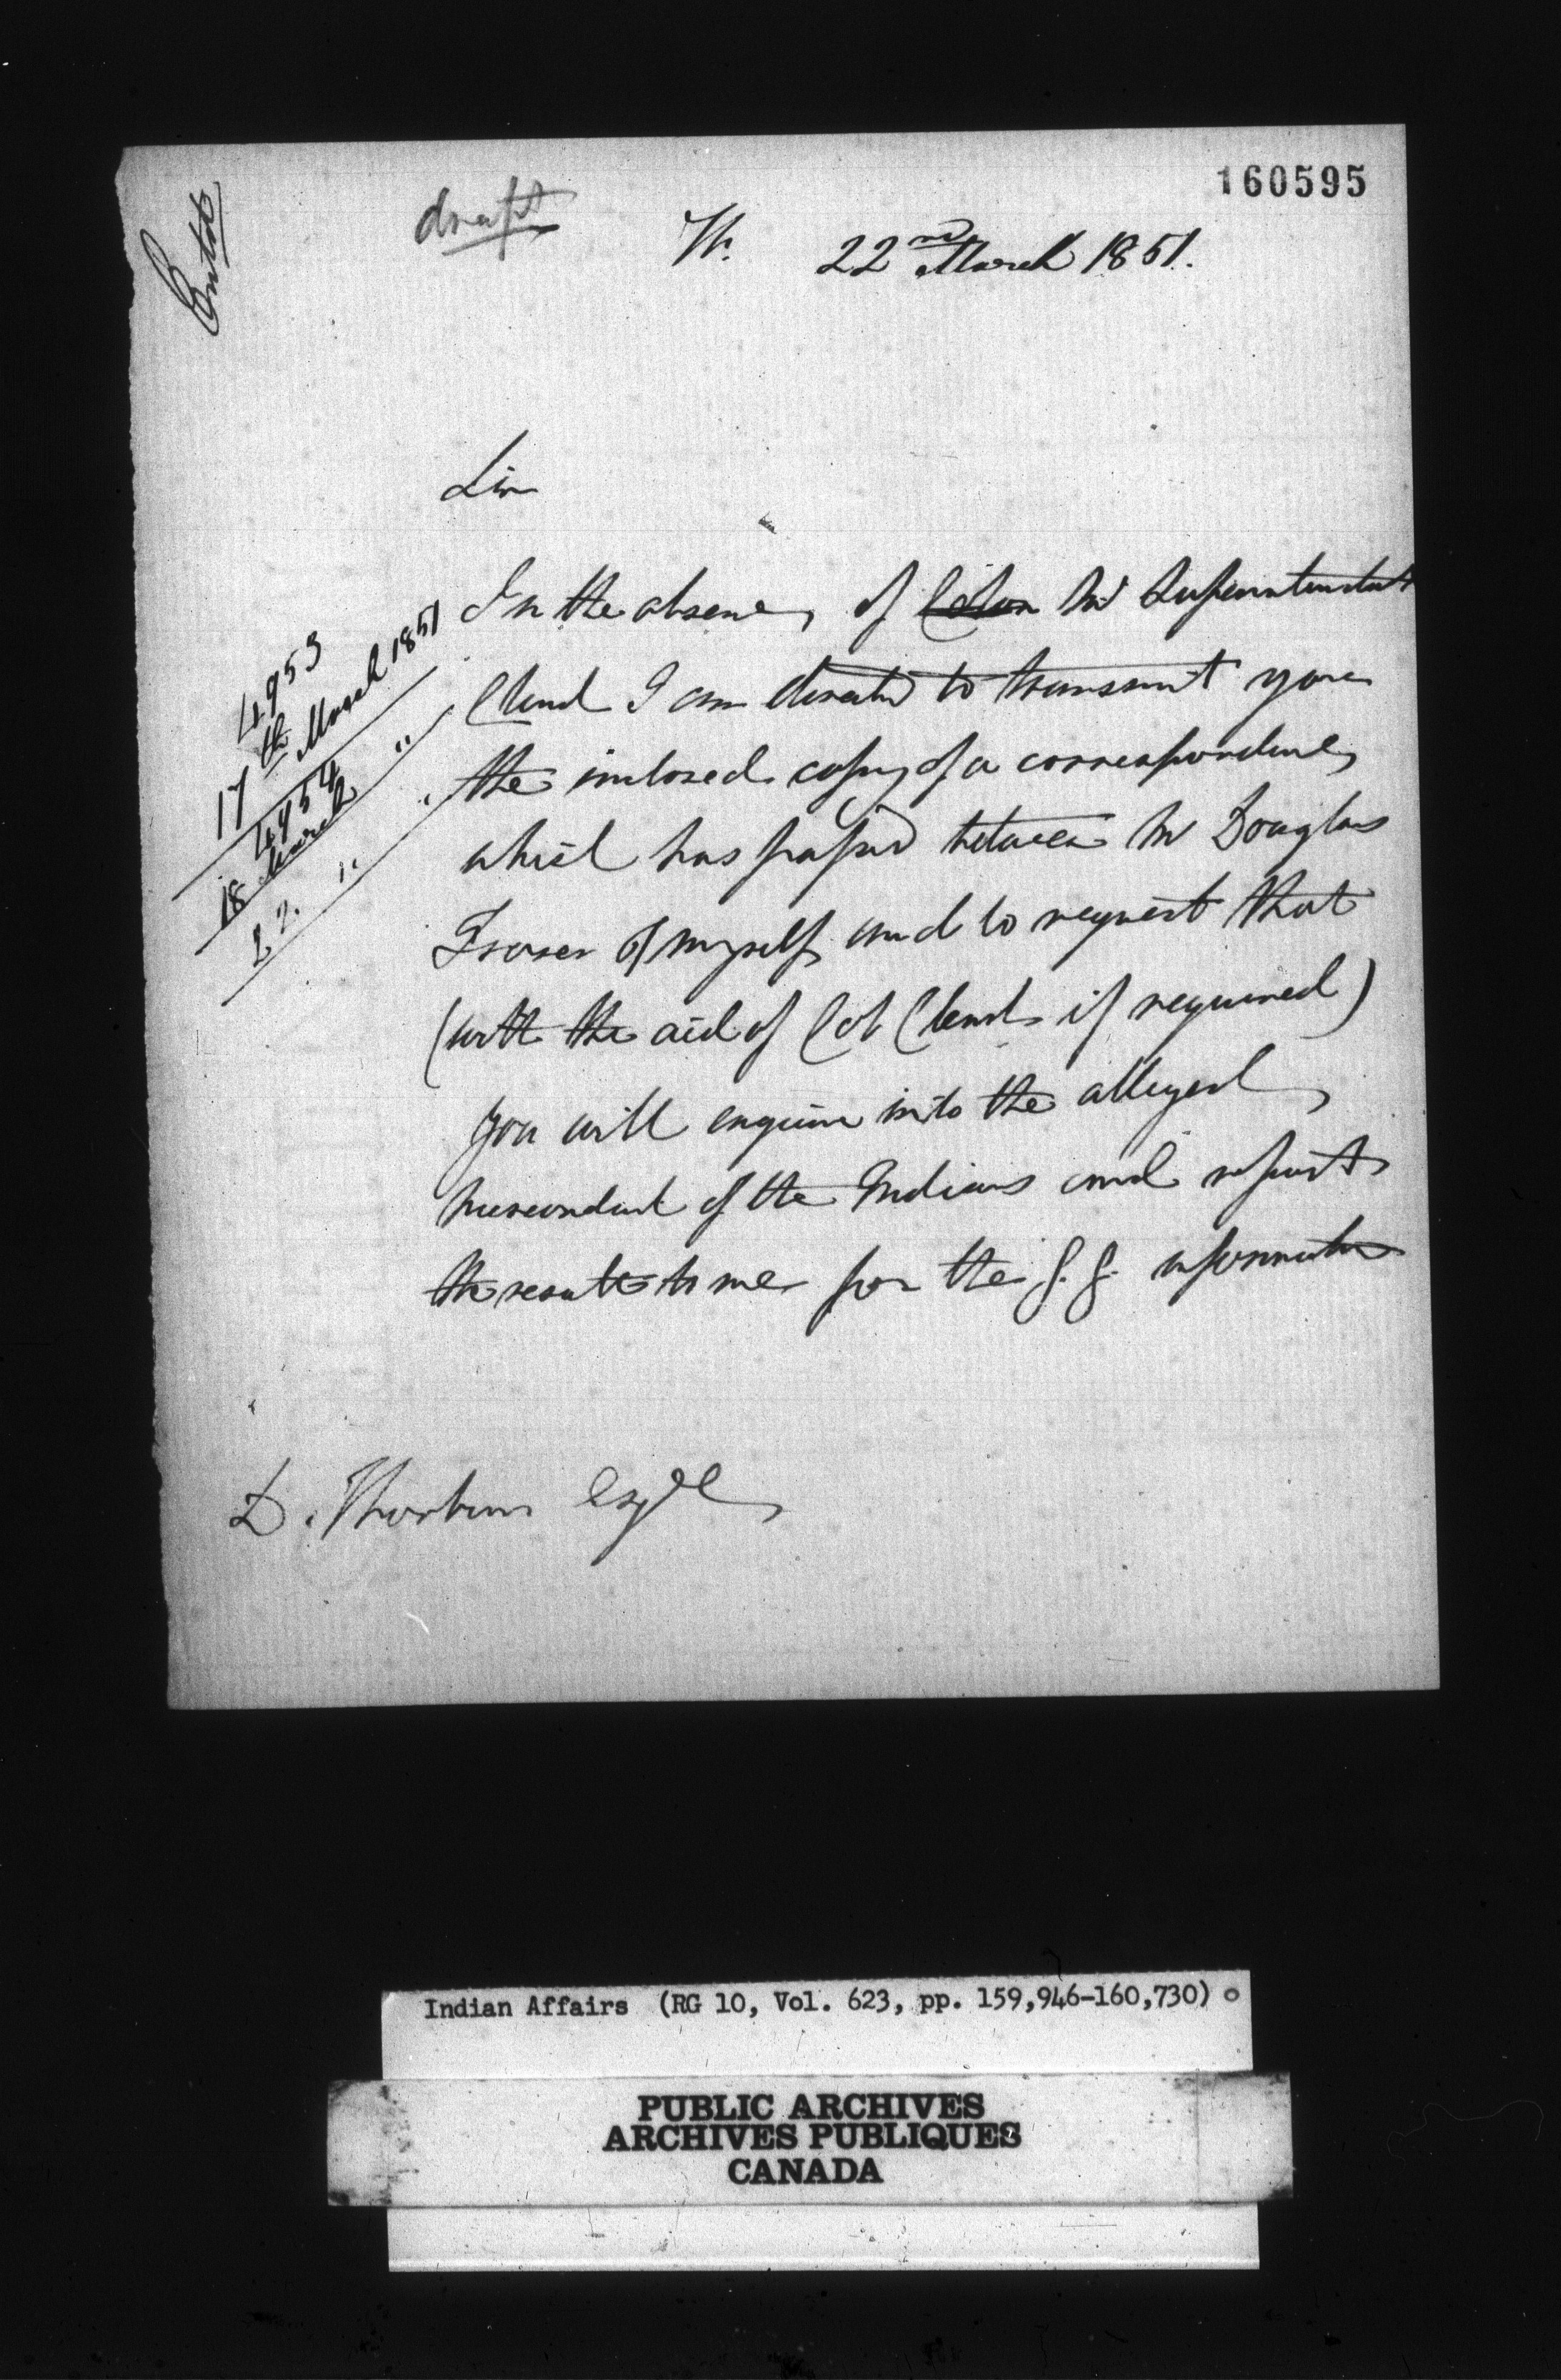 160595
Entd
draft
22nd March 1851.
Sir
In the absence, of Colon Mr Superintendent
Clench I am directed to transmit you
the inclosed copy of a correspondence
which has passed between Mr Douglas
Fraser & myself and to request that
(with the aid of Col Clench if required)
you will enquire into the alleged
misconduct of the Indians and report
the result to me for the G. G. information
4953
17th March 1851
4954
18 March "
22. " "
D. Thorburn Esqre
Indian Affairs (RG 10, Vol. 623, pp. 159,946-160,730)
PUBLIC ARCHIVES
ARCHIVES PUBLIQUES
CANADA